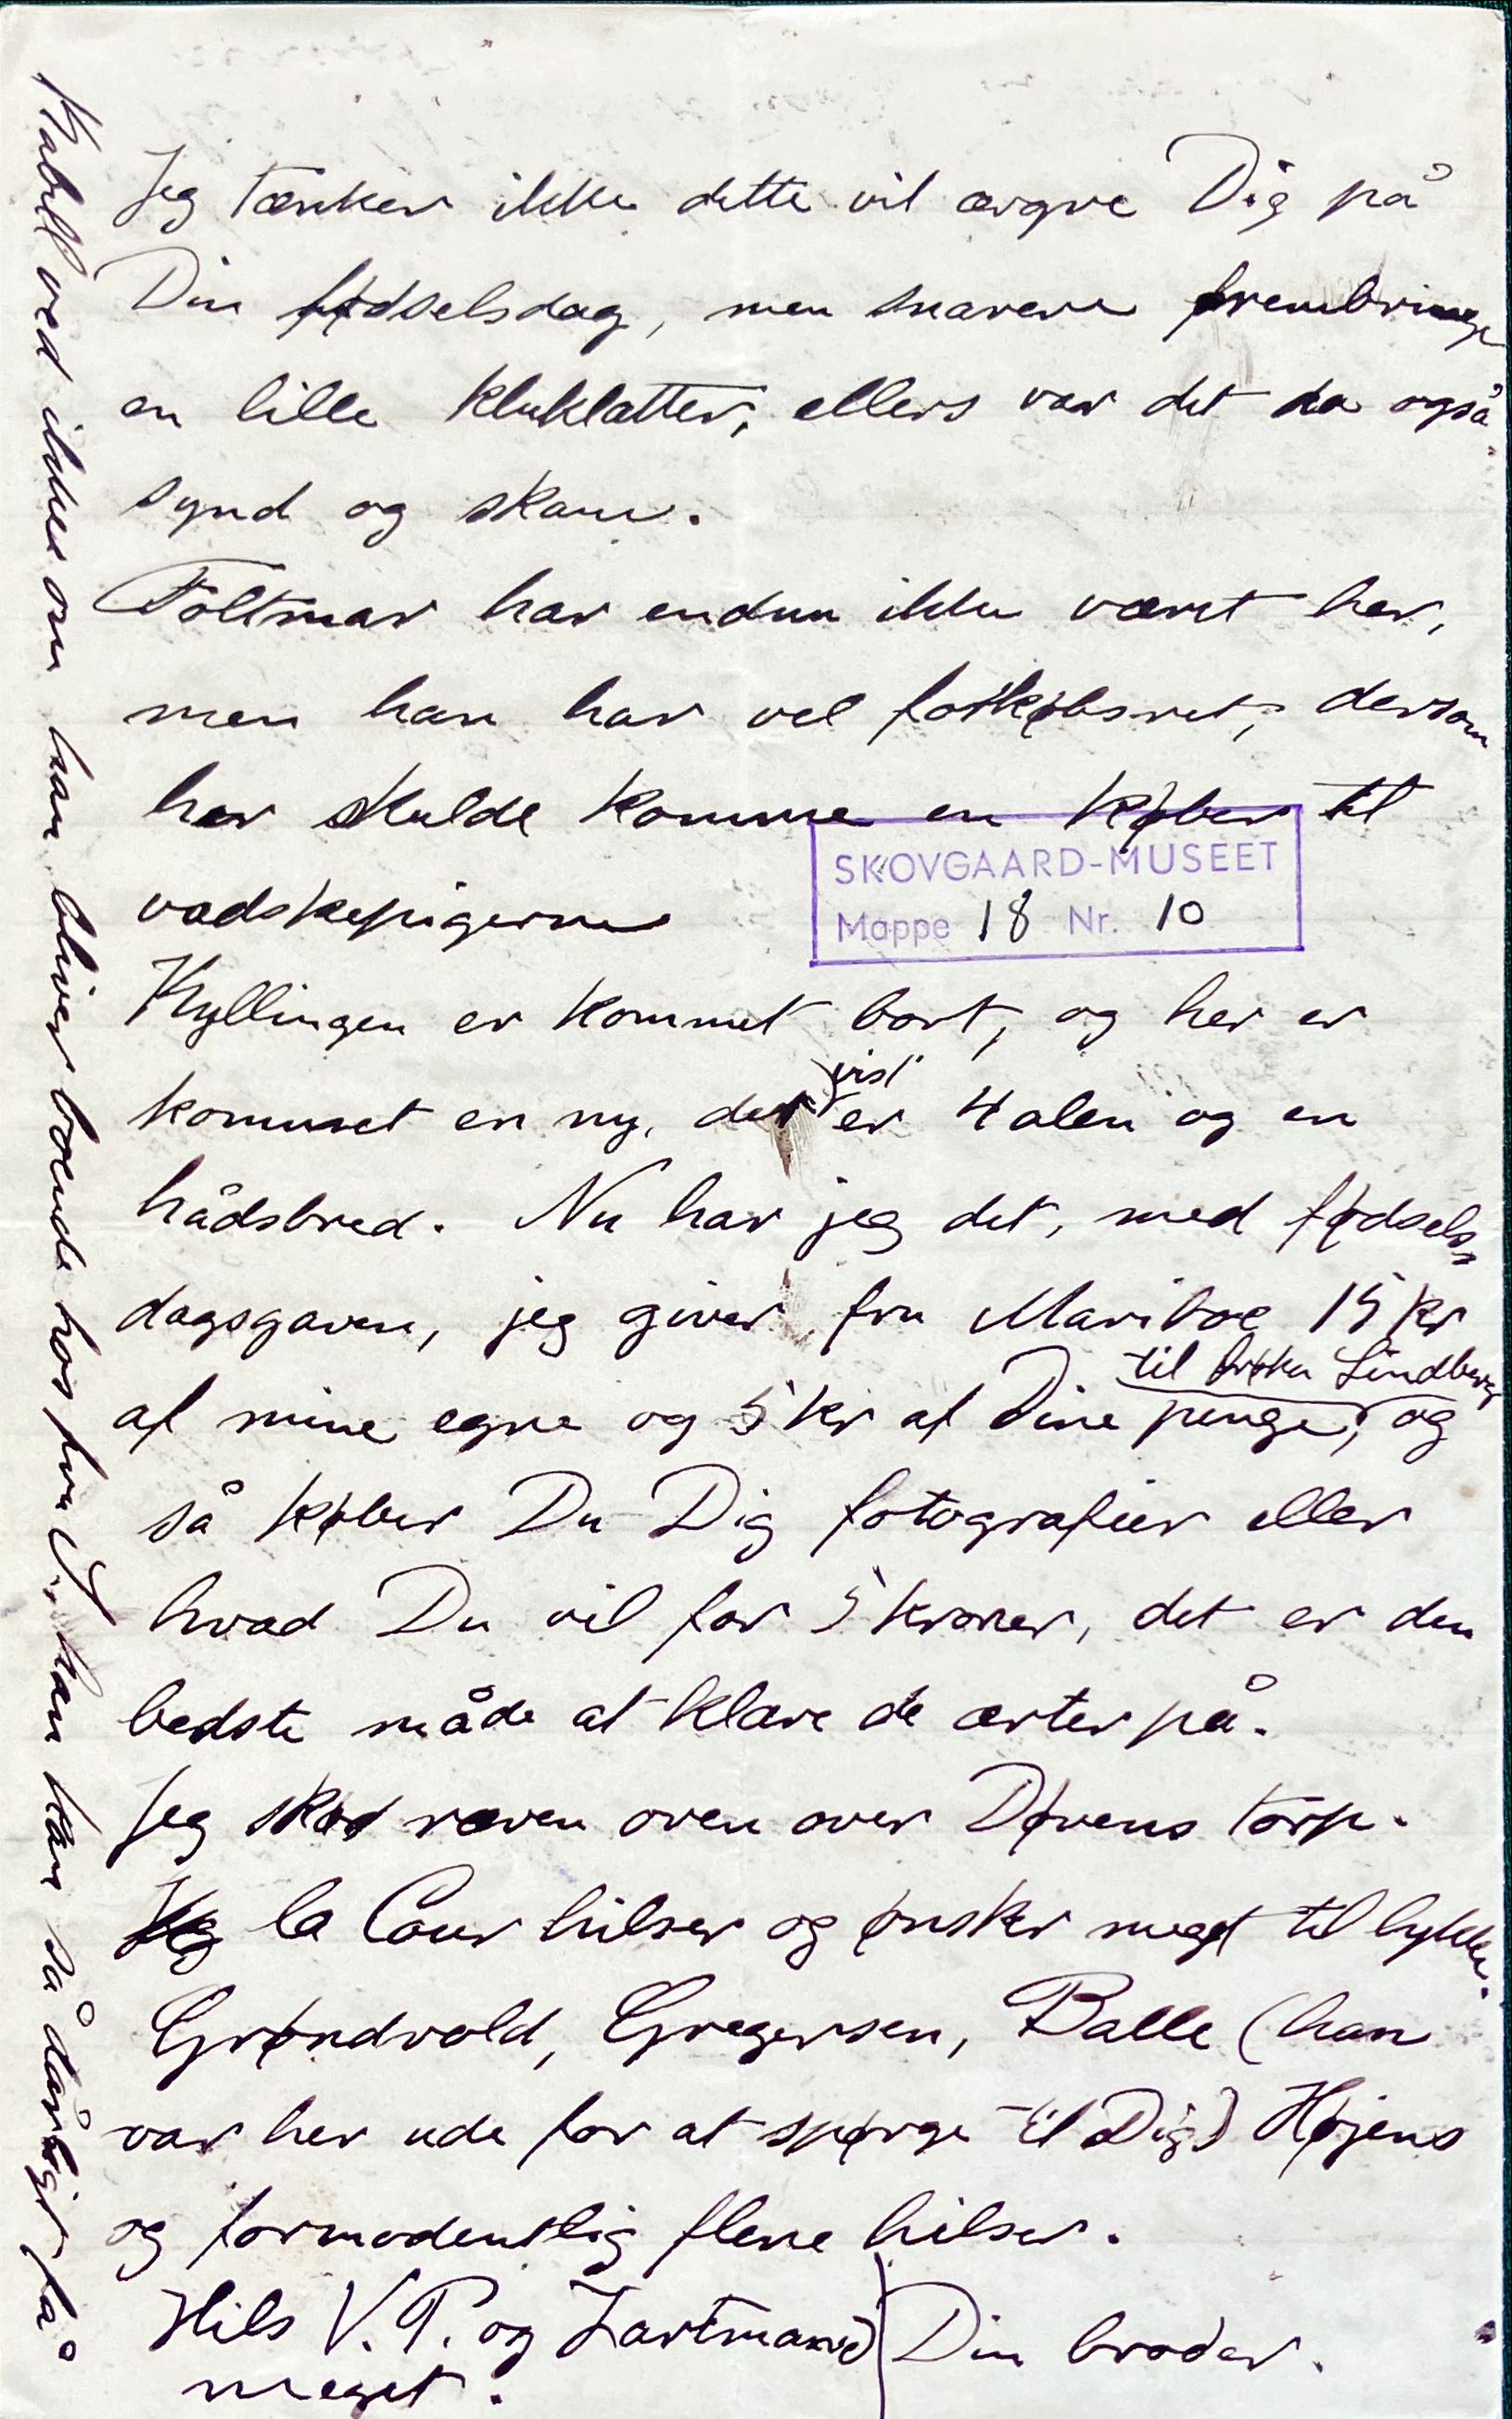 Jeg tænker ikke dette vil ærgre Dig på
Din fødselsdag, men snarere frembringe
en lille kluklatter, ellers var det da også
synd og skam.
Foltmar har endnu ikke været her,
men han har vel forkøbsret, dersom
her skulde komme en køber til
vadskepigerne
SKOVGAARD-MUSEET
Mappe 18 Nr. 10
Kyllingen er kommet bort, og her er
kommet en ny, der vist er 4 alen og en
hådsbred. Nu har jeg det, med fødsels
dagsgaven, jeg giver fru Mariboe 15 kr
af mine egne og 5 kr af Dine penge, til frøken Lindberg og
så køber Du Dig fotografier eller
hvad Du vil for 5 kroner, det er den
bedste måde at klare de ærter på.
Jeg skød ræven oven over Døvens torp.
Jeg la Cour hilser og ønsker meget til lykke.
Grøndvold, Gregersen, Balle (han
var her ude for at spørge til Dig) Højens
og formodentlig flere hilser.
Hils V. P. og Zartmand
meget.
Din broder.
Kabell ved ikke om han bliver boende hos fru han kan så dårligt få